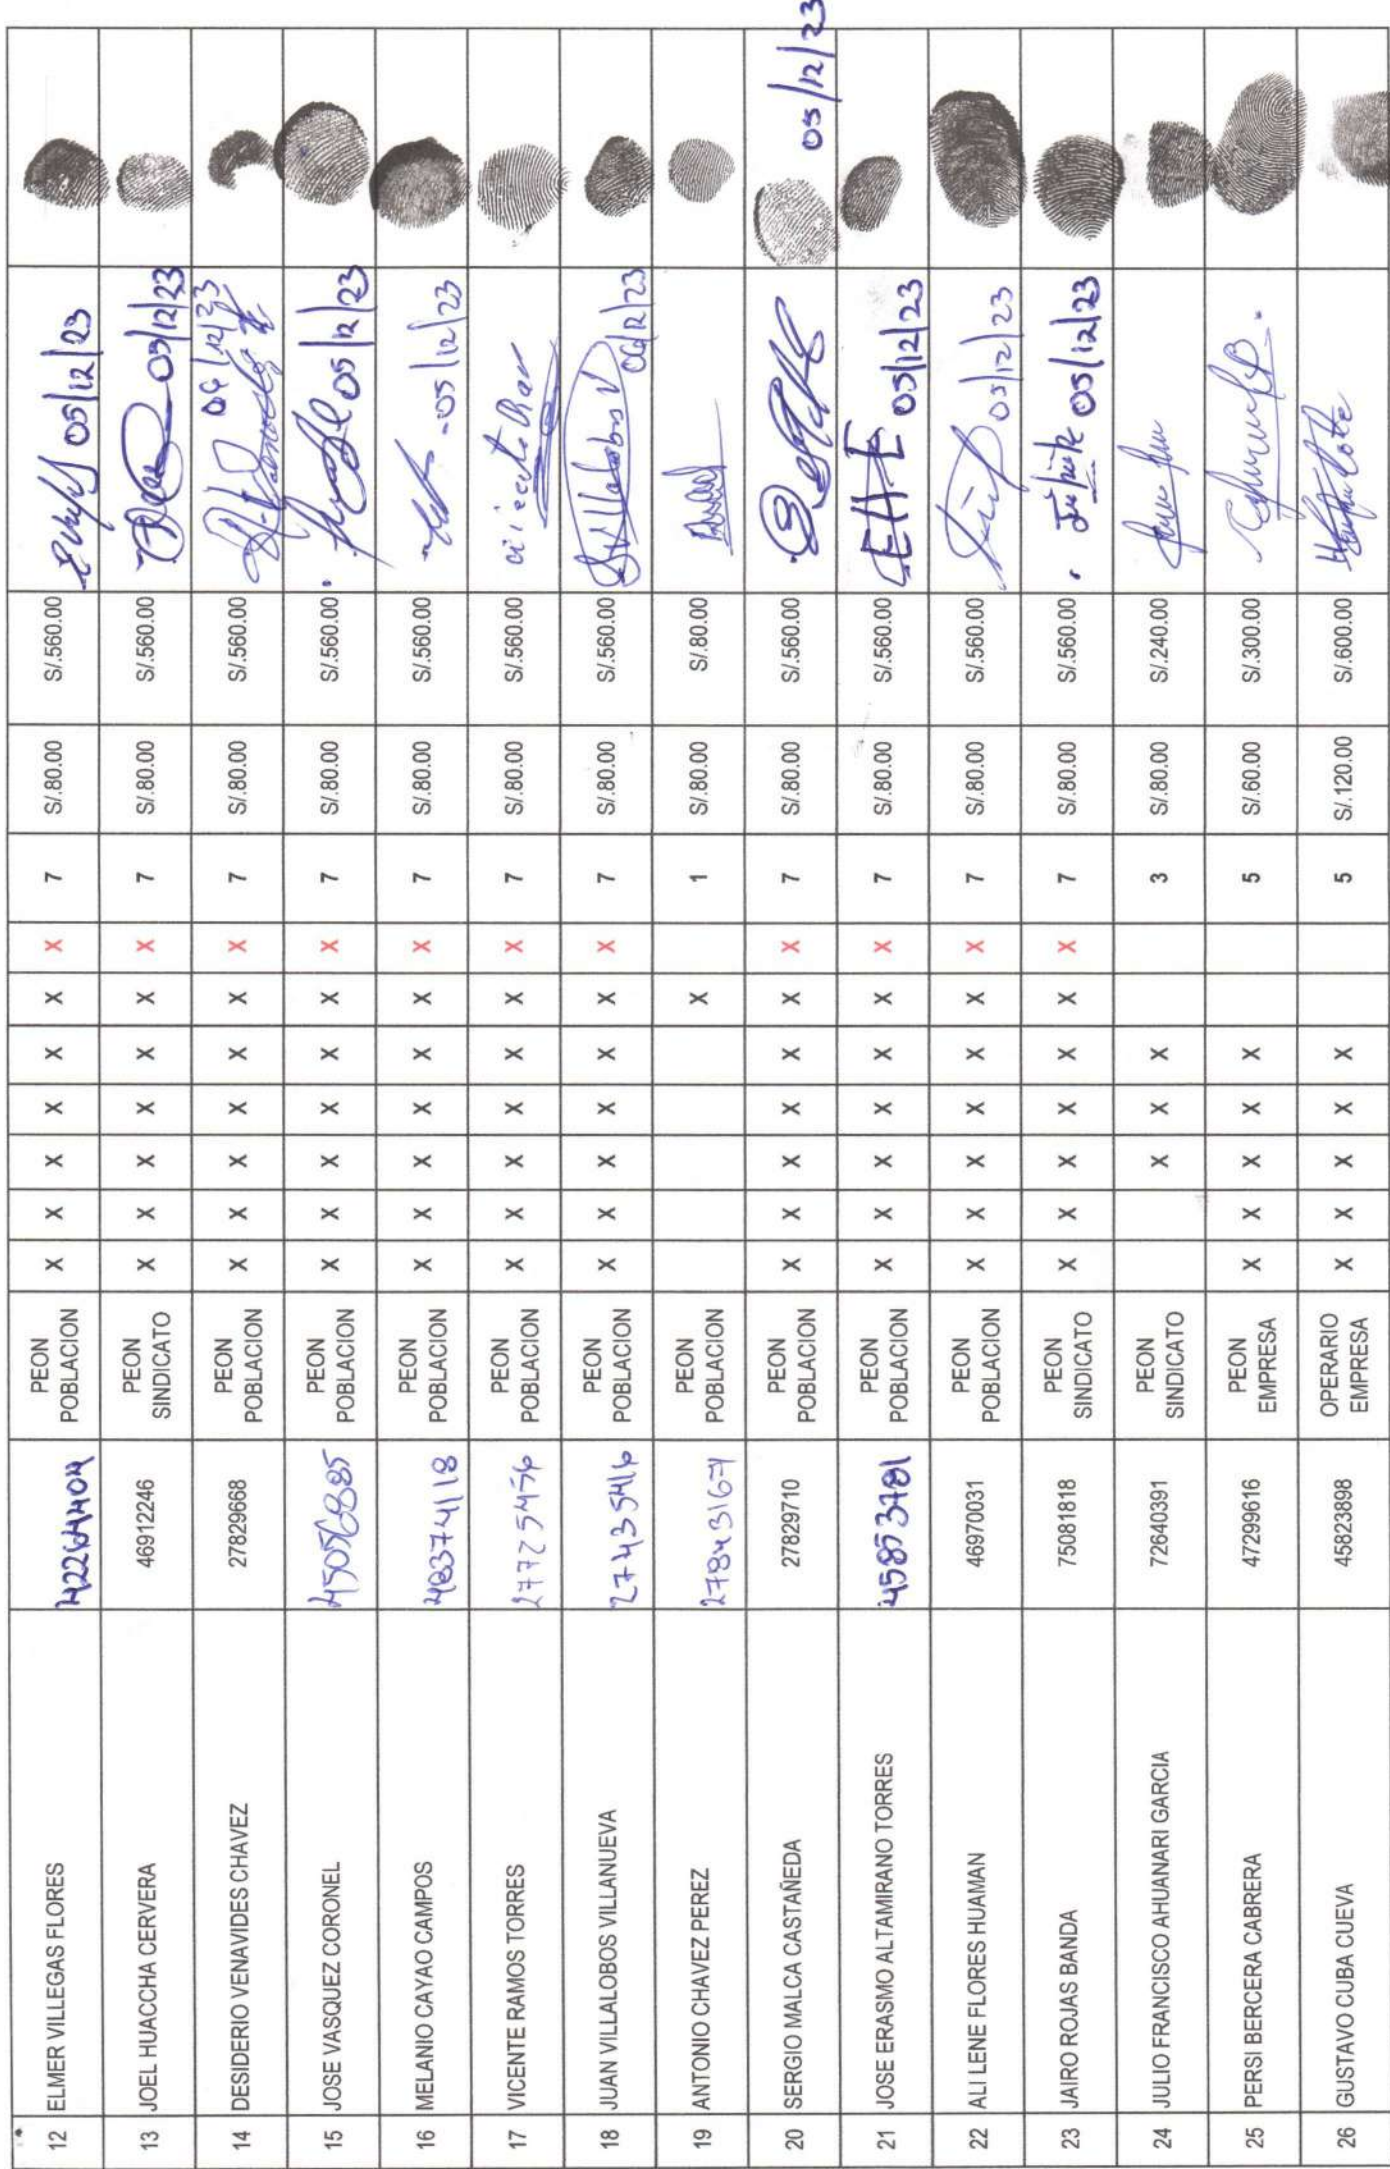 12 ELMER VILLEGAS FLORES 42264404 PEON POBLACION X X X X X X X 7 S/.80.00 S/.560.00 05/12/23
13 JOEL HUACCHA CERVERA 46912246 PEON SINDICATO X X X X X X X 7 S/.80.00 S/.560.00 05/12/23
14 DESIDERIO VENAVIDES CHAVEZ 27829668 PEON POBLACION X X X X X X X 7 S/.80.00 S/.560.00 06/12/23
15 JOSE VASQUEZ CORONEL 45056885 PEON POBLACION X X X X X X X 7 S/.80.00 S/.560.00 05/12/23
16 MELANIO CAYAO CAMPOS 48374118 PEON POBLACION X X X X X X X 7 S/.80.00 S/.560.00 05/12/23
17 VICENTE RAMOS TORRES 27725476 PEON POBLACION X X X X X X X 7 S/.80.00 S/.560.00
18 JUAN VILLALOBOS VILLANUEVA 27435416 PEON POBLACION X X X X X X X 7 S/.80.00 S/.560.00 06/12/23
19 ANTONIO CHAVEZ PEREZ 27843167 PEON POBLACION X 1 S/.80.00 S/.80.00
20 SERGIO MALCA CASTAÑEDA 27829710 PEON POBLACION X X X X X X X 7 S/.80.00 S/.560.00 05/12/23
21 JOSE ERASMO ALTAMIRANO TORRES 45853781 PEON POBLACION X X X X X X X 7 S/.80.00 S/.560.00 05/12/23
22 ALI LENE FLORES HUAMAN 46970031 PEON POBLACION X X X X X X X 7 S/.80.00 S/.560.00 05/12/23
23 JAIRO ROJAS BANDA 75081818 PEON SINDICATO X X X X X X X 7 S/.80.00 S/.560.00 05/12/23
24 JULIO FRANCISCO AHUANARI GARCIA 72640391 PEON SINDICATO X X X 3 S/.80.00 S/.240.00
25 PERSI BERCERA CABRERA 47299616 PEON EMPRESA X X X X X 5 S/.60.00 S/.300.00
26 GUSTAVO CUBA CUEVA 45823898 OPERARIO EMPRESA X X X X X 5 S/.120.00 S/.600.00